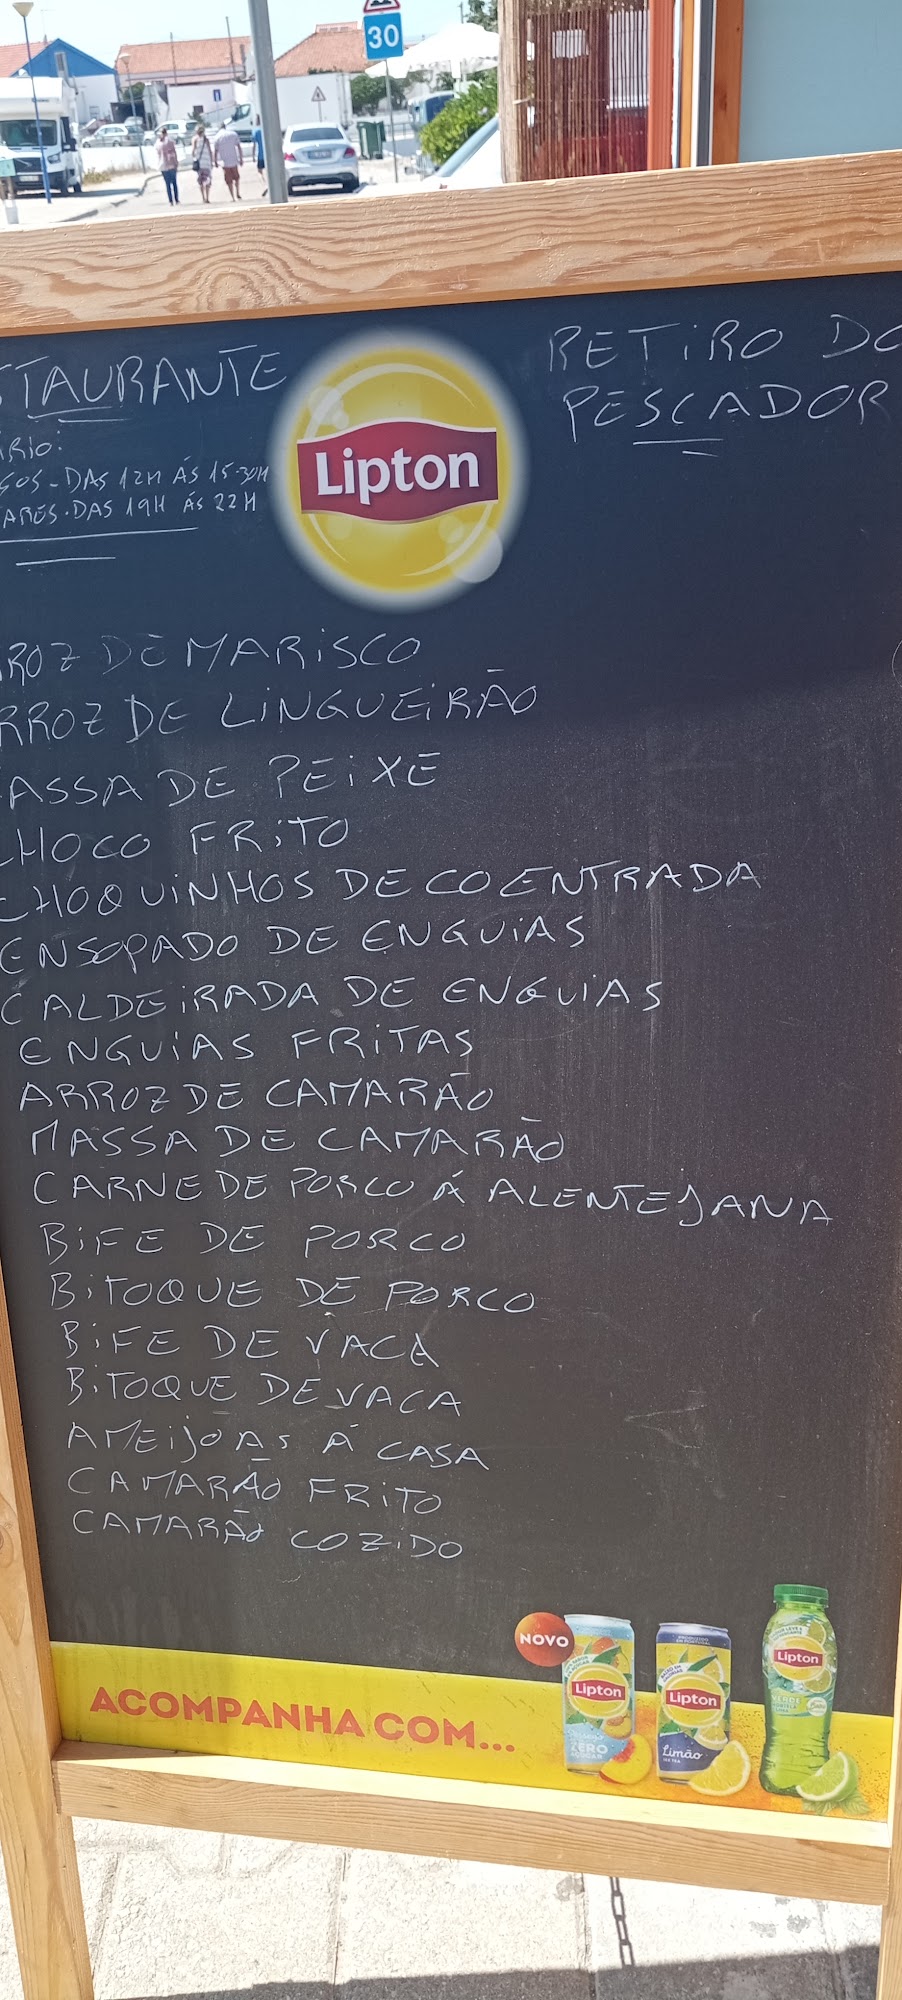 30
STAURANTE
RETIRO DO
PESCADOR
ÁRIO:
ÇOS - DAS 12H ÁS 15-30H
TARES - DAS 19H ÁS 22H
Lipton
RROZ DE MARISCO
RROZ DE LINGUEIRÃO
ASSA DE PEIXE
CHOCO FRITO
CHOQUINHOS DE COENTRADA
ENSOPADO DE ENGUIAS
CALDEIRADA DE ENGUIAS
ENGUIAS FRITAS
ARROZ DE CAMARÃO
MASSA DE CAMARÃO
CARNE DE PORCO Á ALENTEJANA
BIFE DE PORCO
BITOQUE DE PORCO
BIFE DE VACA
BITOQUE DE VACA
AMEIJOAS Á CASA
CAMARÃO FRITO
CAMARÃO COZIDO
NOVO
Lipton
ZERO
Lipton
Limão
Lipton
ACOMPANHA COM...